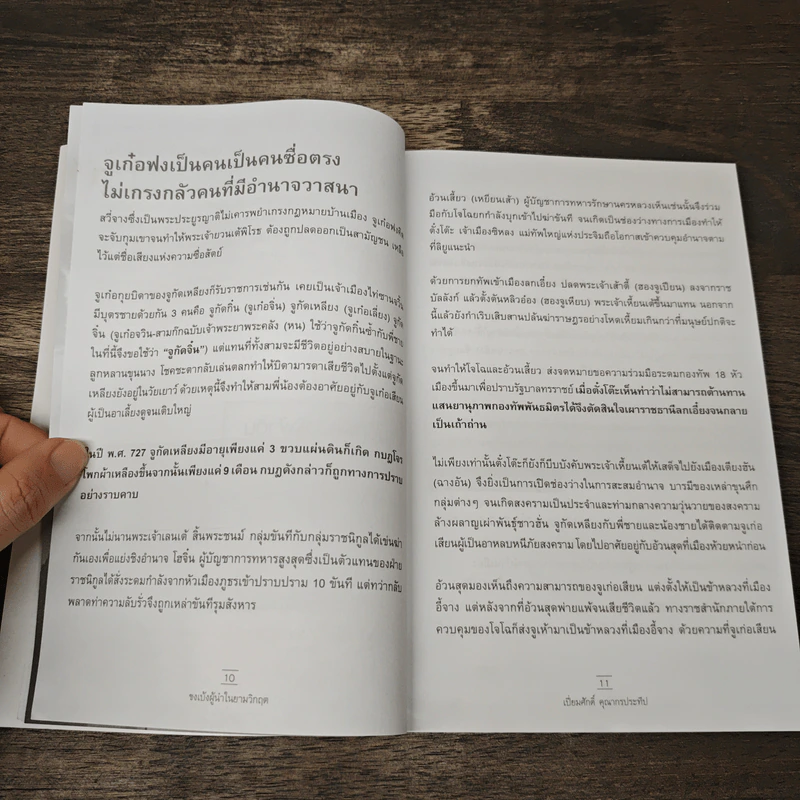 จูเก๋อฟงเป็นคนเป็นคนซื่อตรง
ไม่เกรงกลัวคนที่มีอำนาจวาสนา
สวี่จางซึ่งเป็นพระประยูรญาติไม่เคารพยำเกรงกฎหมายบ้านเมือง จูเก๋อฟงคิด
จะจับกุมเขาจนทำให้พระเจ้าฮวนเต้พิโรธ ต้องถูกปลดออกเป็นสามัญชน เหลือ
ไว้แต่ชื่อเสียงแห่งความซื่อสัตย์
จูเก๋อกุยบิดาของจูกัดเหลียงก็รับราชการเช่นกัน เคยเป็นเจ้าเมืองไท่ซานจวิ้น
มีบุตรชายด้วยกัน 3 คนคือ จูกัดกิ๋น (จูเก๋อจิ่น) จูกัดเหลียง (จูเก่อเลี่ยง) จูกัด
จิ๋น (จูเก๋อจวิน-สามก๊กฉบับเจ้าพระยาพระคลัง (หน) ใช้ว่าจูกัดกิ๋นซ้ำกับพี่ชาย
ในที่นี้จึงขอใช้ว่า “จูกัดจิ๋น”) แต่แทนที่ทั้งสามจะมีชีวิตอยู่อย่างสบายในฐานะ
ลูกหลานขุนนาง โชคชะตากลับเล่นตลกทำให้บิดามารดาเสียชีวิตไปตั้งแต่จูกัด
เหลียงยังอยู่ในวัยเยาว์ ด้วยเหตุนี้จึงทำให้สามพี่น้องต้องอาศัยอยู่กับจูเก่อเสียน
ผู้เป็นอาเลี้ยงดูจนเติบใหญ่
ในปี พ.ศ. 727 จูกัดเหลียงมีอายุเพียงแค่ 3 ขวบแผ่นดินก็เกิด กบฏโจร
โพกผ้าเหลืองขึ้นจากนั้นเพียงแค่ 9 เดือน กบฏดังกล่าวก็ถูกทางการปราบ
อย่างราบคาบ
จากนั้นไม่นานพระเจ้าเลนเต้ สิ้นพระชนม์ กลุ่มขันทีกับกลุ่มราชนิกูลได้เข่นฆ่า
กันเองเพื่อแย่งชิงอำนาจ โฮจิ๋น ผู้บัญชาการทหารสูงสุดซึ่งเป็นตัวแทนของฝ่าย
ราชนิกูลได้สั่งระดมกำลังจากหัวเมืองภูธรเข้าปราบปราม 10 ขันที แต่ทว่ากลับ
พลาดท่าความลับรั่วจึงถูกเหล่าขันทีรุมสังหาร
10
ขงเบ้งผู้นำในยามวิกฤต
อ้วนเสี้ยว (เหยียนเส้า) ผู้บัญชาการทหารรักษานครหลวงเห็นเช่นนั้นจึงร่วม
มือกับโจโฉยกกำลังบุกเข้าไปฆ่าขันที จนเกิดเป็นช่องว่างทางการเมืองทำให้
ตั๋งโต๊ะ เจ้าเมืองซีหลง แม่ทัพใหญ่แห่งประจิมถือโอกาสเข้าควบคุมอำนาจตาม
ที่ลิยูแนะนำ
ด้วยการยกทัพเข้าเมืองลกเอี๋ยง ปลดพระเจ้าเส้าตี้ (ฮองจูเปียน) ลงจากราช
บัลลังก์ แล้วตั้งตันหลิวอ๋อง (ฮองจูเหียบ) พระเจ้าเหี้ยนเต้ขึ้นมาแทน นอกจาก
นี้แล้วยังกำเริบเสิบสานปล้นฆ่าราษฎรอย่างโหดเหี้ยมเกินกว่าที่มนุษย์ปกติจะ
ทำได้
จนทำให้โจโฉและอ้วนเสี้ยว ส่งจดหมายขอความร่วมมือระดมกองทัพ 18 หัว
เมืองขึ้นมาเพื่อปราบรัฐบาลทรราชย์ เมื่อตั๋งโต๊ะเห็นท่าว่าไม่สามารถต้านทาน
แสนยานุภาพกองทัพพันธมิตรได้จึงตัดสินใจเผาราชธานีลกเอี๋ยงจนกลาย
เป็นเถ้าถ่าน
ไม่เพียงเท่านั้นตั๋งโต๊ะก็ยังก็บีบบังคับพระเจ้าเหี้ยนเต้ให้เสด็จไปยังเมืองเตียงฮัน
(ฉางอัน) จึงยิ่งเป็นการเปิดช่องว่างในการสะสมอำนาจ บารมีของเหล่าขุนศึก
กลุ่มต่างๆ จนเกิดสงครามเป็นประจำและท่ามกลางความวุ่นวายของสงคราม
ล้างผลาญเผ่าพันธุ์ชาวฮั่น จูกัดเหลียงกับพี่ชายและน้องชายได้ติดตามจูเก่อ
เสียนผู้เป็นอาหลบหนีภัยสงคราม โดยไปอาศัยอยู่กับอ้วนสุดที่เมืองห้วยหนำก่อน
อ้วนสุดมองเห็นถึงความสามารถของจูเก่อเสียน แต่งตั้งให้เป็นข้าหลวงที่เมือง
อี้จาง แต่หลังจากที่อ้วนสุดพ่ายแพ้จนเสียชีวิตแล้ว ทางราชสำนักภายใต้การ
ควบคุมของโจโฉก็ส่งจูเห้ามาเป็นข้าหลวงที่เมืองอี้จาง ด้วยความที่จูเก่อเสียน
11
เปี่ยมศักดิ์ คุณากรประทีป